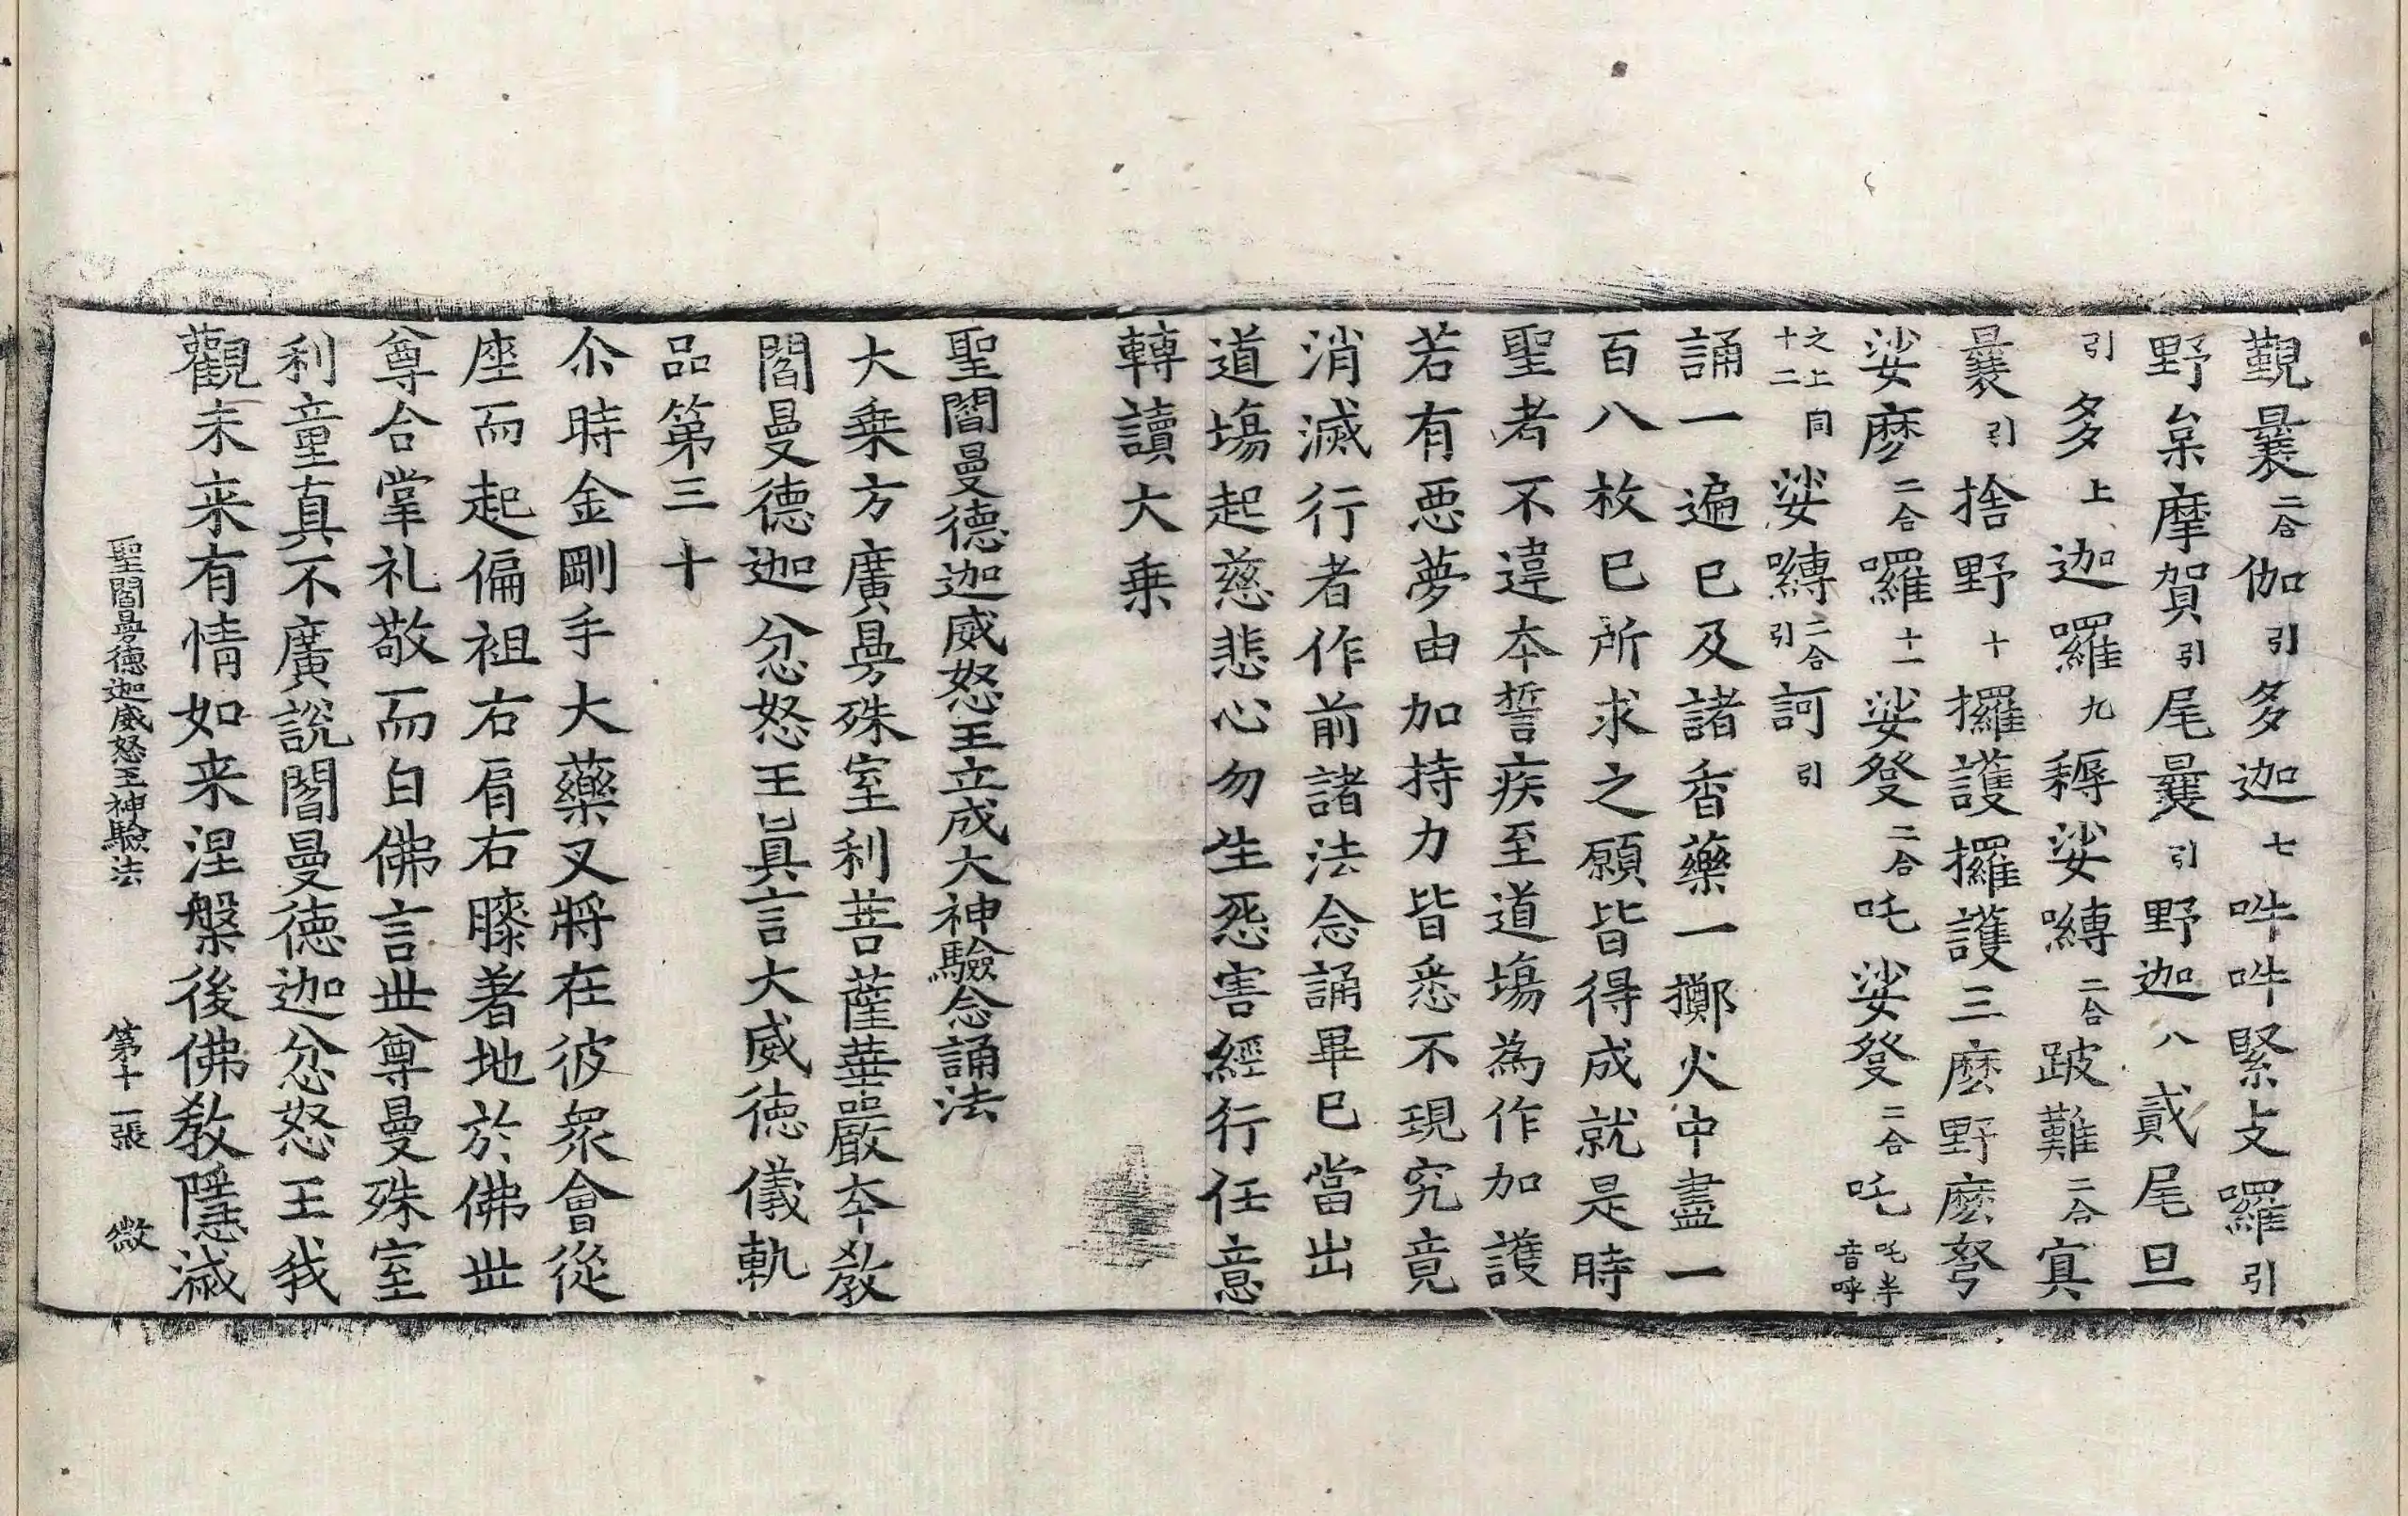 覲曩二合伽引多迦七吽吽緊攴囉引
野枲摩賀引尾曩引野迦八貳尾旦
引多上迦囉九耨娑嚩二合跛難二合寘
曩引捨野十攞護攞護三麽野麽弩
娑麽二合囉十一娑癹二合吒娑癹二合吒吒半音呼
之上同十二娑嚩二合引訶引
誦一遍已及諸香藥一擲火中盡一
百八枚已所求之願皆得成就是時
聖者不違本誓疾至道場為作加護
若有惡夢由加持力皆悉不現究竟
消滅行者作前諸法念誦畢已當出
道場起慈悲心勿生惡害經行任意
轉讀大乗
聖閻曼德迦威怒王立成大神驗念誦法
大乗方廣曼殊室利菩薩華嚴本教
閻曼德迦忿怒王真言大威德儀軌
品第三十
尒時金剛手大藥叉將在彼衆會從
座而起偏袒右肩右膝著地於佛世
尊合掌礼敬而白佛言世尊曼殊室
利童真不廣說閻曼德迦忿怒王我
觀未来有情如来涅槃後佛教隱滅
聖閻曼德迦威怒王神驗法 第十一張 微